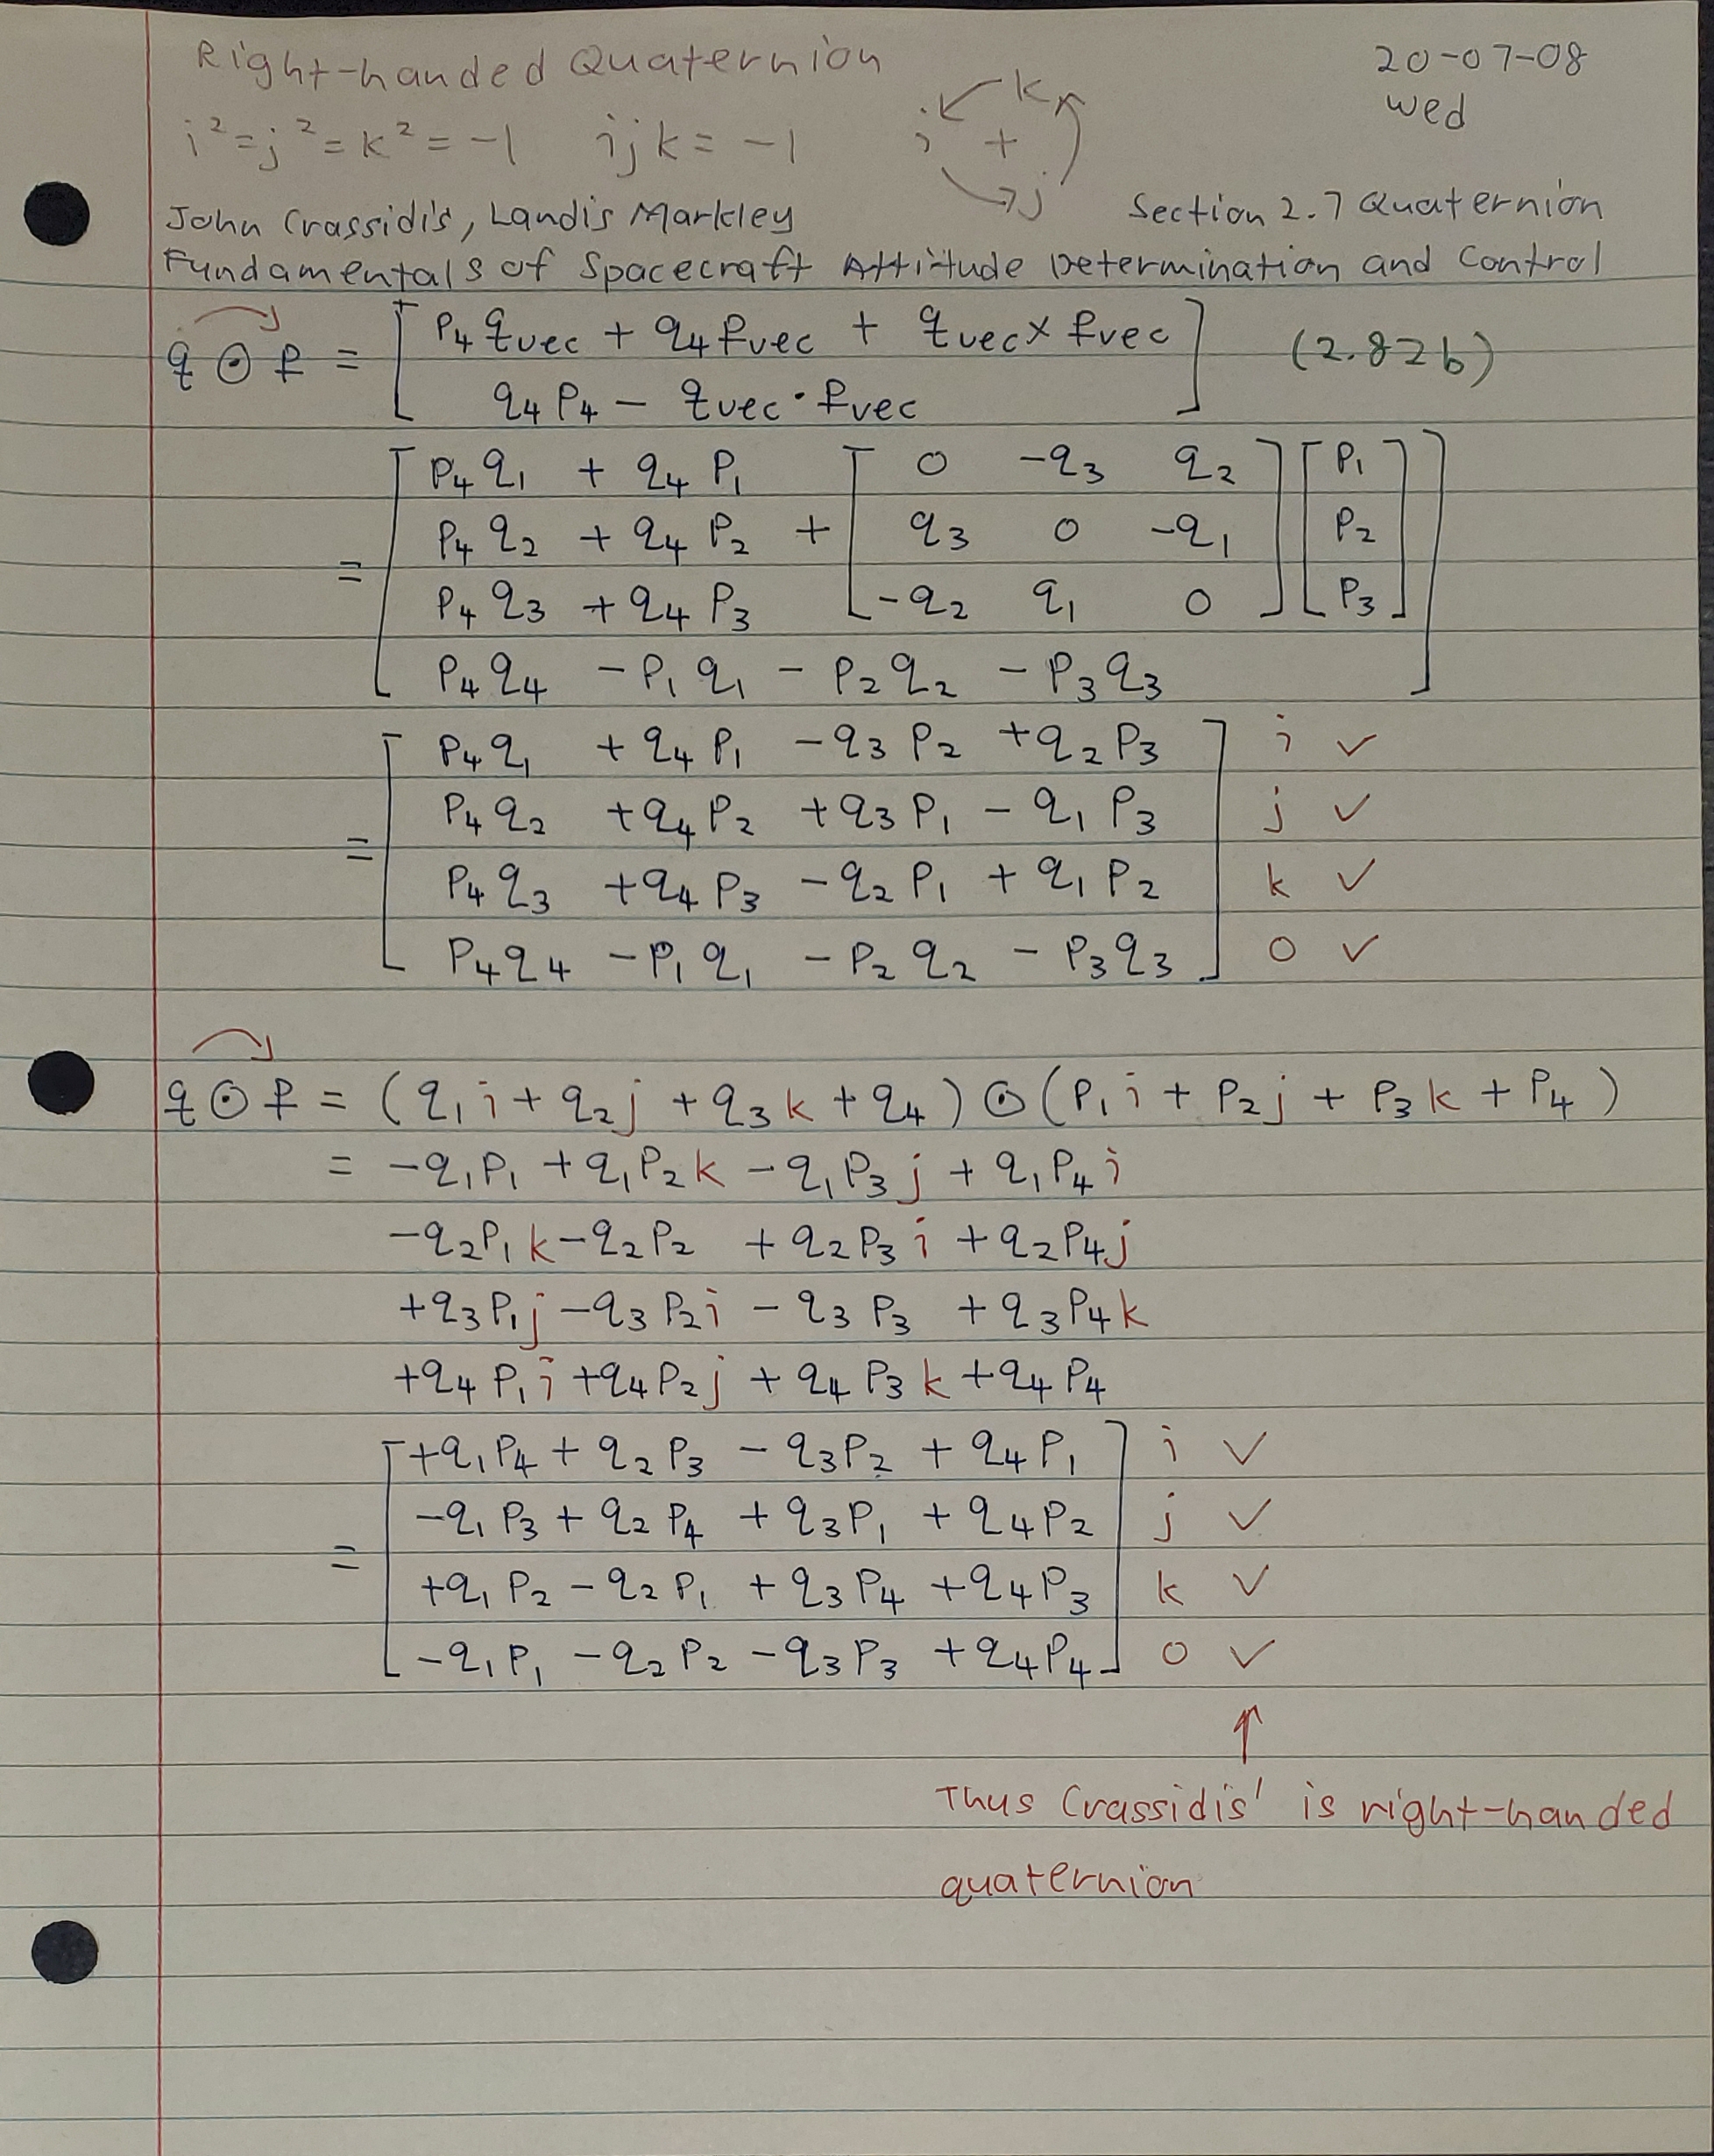 Right-handed Quaternion 20-07-08
wed
i² = j² = k² = -1 ijk = -1 i j k +
John Crassidis, Landis Markley Section 2.7 Quaternion
Fundamentals of Spacecraft Attitude Determination and Control
q ⊙ p = [ p₄ q_vec + q₄ p_vec + q_vec × p_vec ] (2.82b)
q₄ p₄ - q_vec · p_vec
p₄ q₁ + q₄ p₁ [ 0 -q₃ q₂ ] [ p₁ ]
p₄ q₂ + q₄ p₂ + q₃ 0 -q₁ p₂
=
p₄ q₃ + q₄ p₃ -q₂ q₁ 0 p₃
p₄ q₄ - p₁ q₁ - p₂ q₂ - p₃ q₃
p₄ q₁ + q₄ p₁ - q₃ p₂ + q₂ p₃ i ✓
p₄ q₂ + q₄ p₂ + q₃ p₁ - q₁ p₃ j ✓
=
p₄ q₃ + q₄ p₃ - q₂ p₁ + q₁ p₂ k ✓
p₄ q₄ - p₁ q₁ - p₂ q₂ - p₃ q₃ 0 ✓
q ⊙ p = (q₁ i + q₂ j + q₃ k + q₄) ⊙ (p₁ i + p₂ j + p₃ k + p₄)
= -q₁p₁ + q₁p₂ k - q₁p₃ j + q₁p₄ i
-q₂p₁ k - q₂p₂ + q₂p₃ i + q₂p₄ j
+q₃p₁ j - q₃p₂ i - q₃p₃ + q₃p₄ k
+q₄p₁ i + q₄p₂ j + q₄p₃ k + q₄p₄
+q₁p₄ + q₂p₃ - q₃p₂ + q₄p₁ i ✓
-q₁p₃ + q₂p₄ + q₃p₁ + q₄p₂ j ✓
=
+q₁p₂ - q₂p₁ + q₃p₄ + q₄p₃ k ✓
-q₁p₁ - q₂p₂ - q₃p₃ + q₄p₄ 0 ✓
Thus Crassidis' is right-handed
quaternion